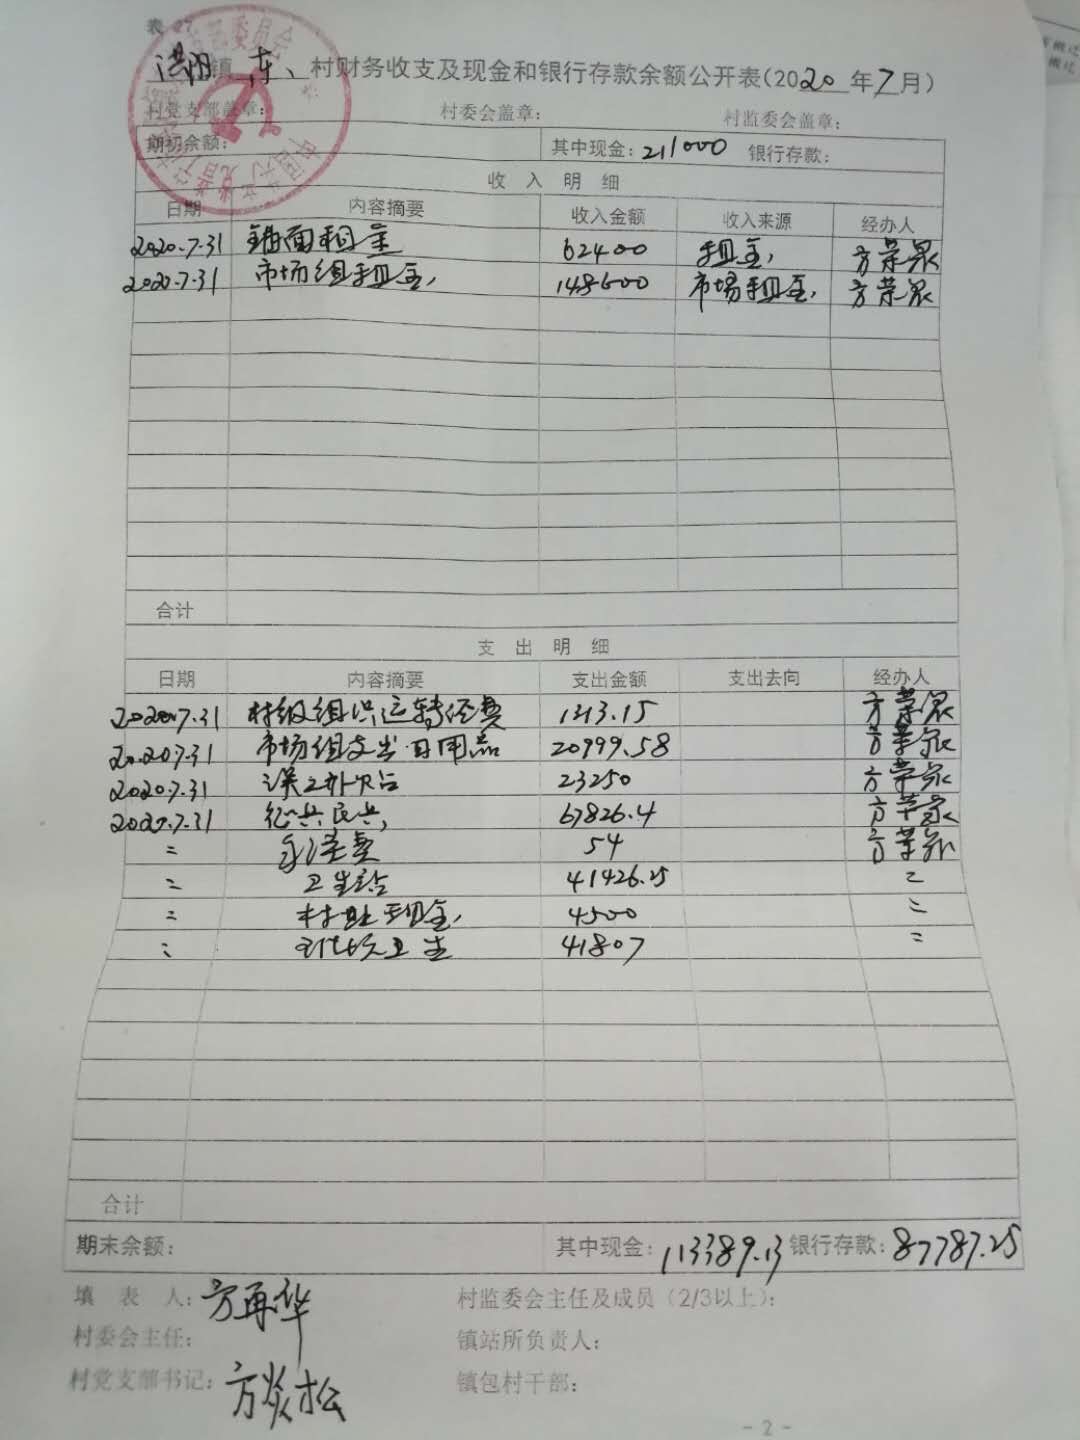 表 27
洪阳镇 东、村财务收支及现金和银行存款余额公开表(2020年7月)
村党支部盖章: 村委会盖章: 村监委会盖章:
期初余额: 其中现金: 211000 银行存款:
收 入 明 细
日期 内容摘要 收入金额 收入来源 经办人
2020.7.31 铺面租金 62400 租金, 方荣泉
2020.7.31 市场组租金, 148600 市场租金, 方荣泉
合计
支 出 明 细
日期 内容摘要 支出金额 支出去向 经办人
2020.7.31 村级组织运转经费 1313.15 方荣泉
2020.7.31 市场组支出日用品 20999.58 方荣泉
2020.7.31 误工补贴 23250 方荣泉
2020.7.31 67826.4 方荣泉
= 费 54 方荣泉
= 卫生站 41426.25 =
= 村址租金, 4500 =
= 卫生 41807 =
合计
期末余额: 其中现金: 113389.13 银行存款: 87787.25
填 表 人: 方再华 村监委会主任及成员(2/3以上):
村委会主任: 镇站所负责人:
村党支部书记: 方炎松 镇包村干部:
- 2 -